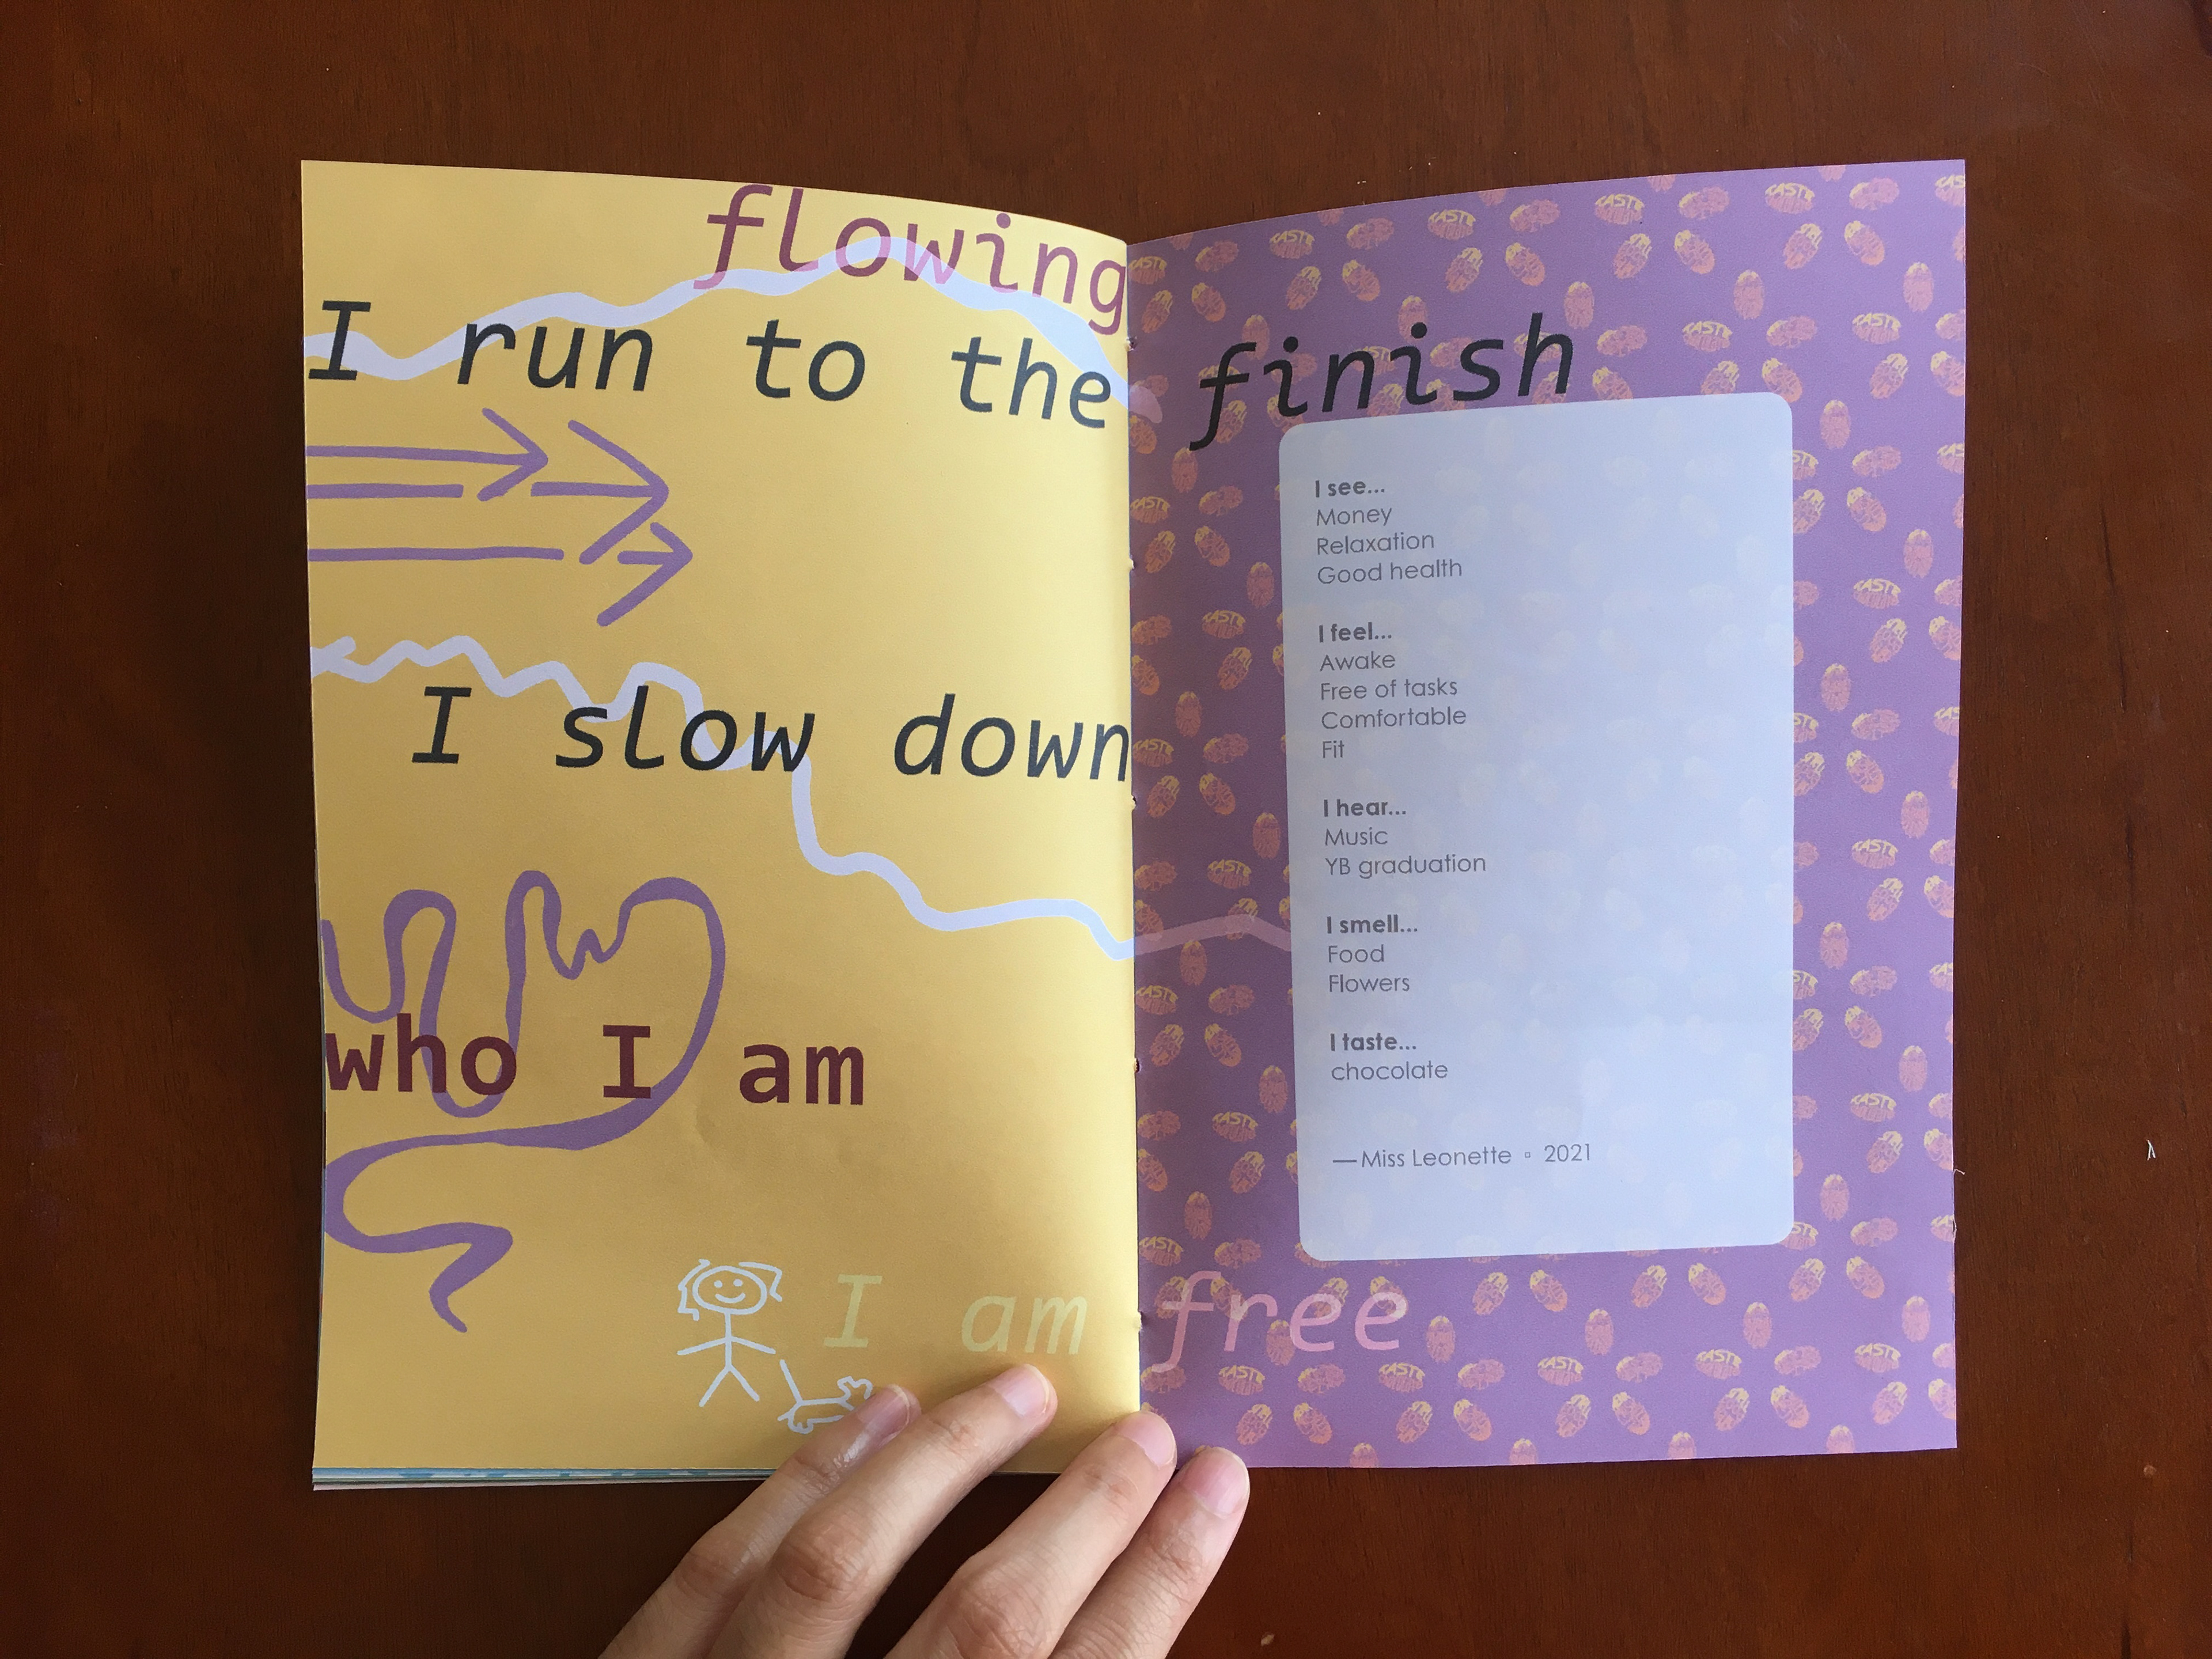 flowing
I run to the finish
I slow down
who I am
I am free
I see...
Money
Relaxation
Good health
I feel...
Awake
Free of tasks
Comfortable
Fit
I hear...
Music
YB graduation
I smell...
Food
Flowers
I taste...
chocolate
—Miss Leonette ▫ 2021